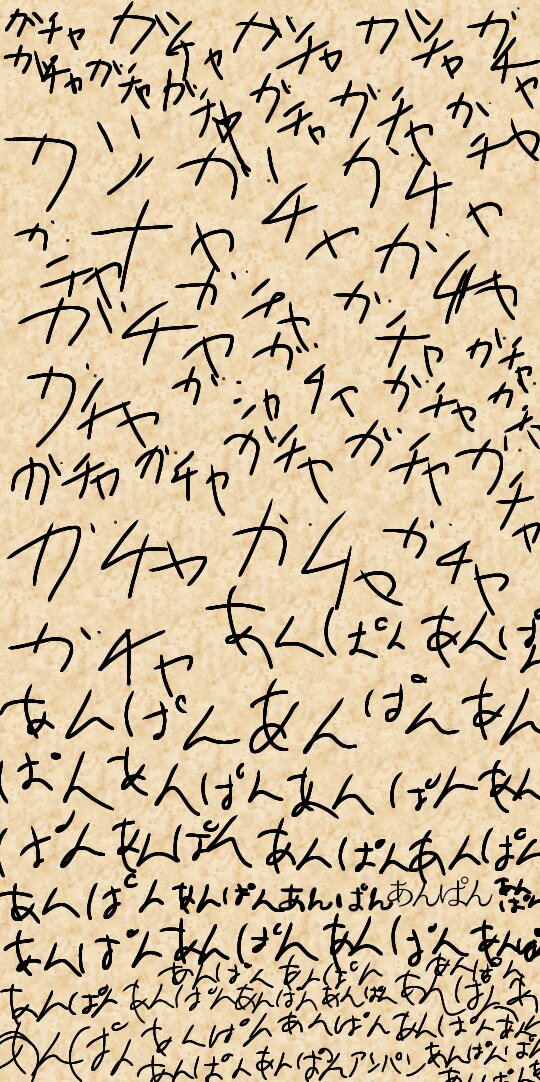 ガチャ ガチャ ガチャ ガチャ ガチャ
ガチャ ガチャ ガチャ ガチャ ガチャ ガチャ
ガチャ ガチャ ガチャ
ガチャ ガチャ ガチャ ガチャ
ガチャ ガチャ ガチャ ガチャ
ガチャ ガチャ ガチャ ガチャ ガチャ
ガチャ ガチャ ガチャ ガチャ ガチャ
ガチャ ガチャ ガチャ
ガチャ あんぱん あんぱ
あんぱん あんぱん あん
ぱん あんぱん あんぱん あん
ぱん あんぱん あんぱん あんぱ
あんぱん あんぱん あんぱん あんぱん あんぱん
あんぱん あんぱん あんぱん あんぱ
あんぱん あんぱん あんぱん
あんぱん あんぱん あんぱん あんぱん あんぱん あ
あんぱん あんぱん あんぱん あんぱん
あんぱん あんぱん アンパン あんぱん